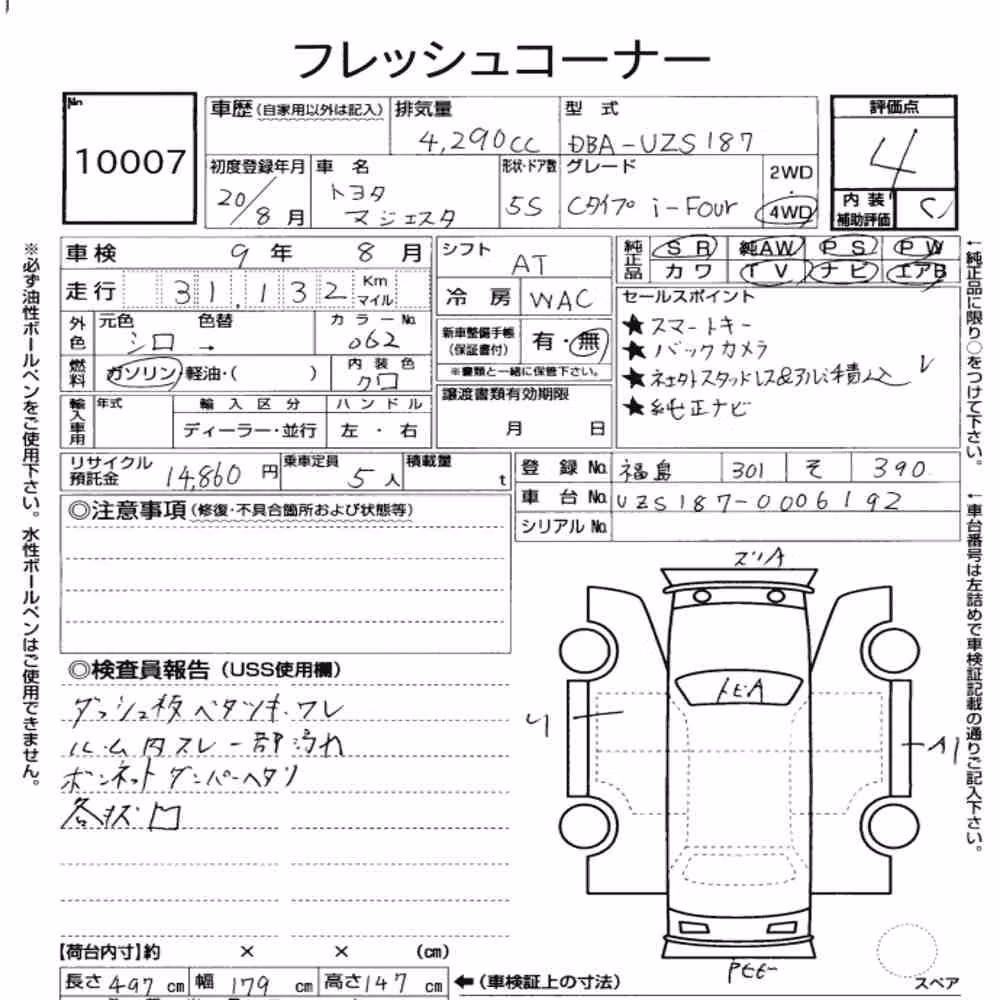 フレッシュコーナー
No 10007
車歴(自家用以外は記入)
排気量 4,290CC
型 式 DBA-UZS187
評価点 4
初度登録年月 20/8 月
車 名 トヨタ マジェスタ
形状・ドア数 5S
グレード Cタイプ i-Four
2WD・4WD
内装補助評価 C
車検 9年 8月
シフト AT
純正品 SR 純AW PS PW
カワ TV ナビ エアB
走行 31,132 Km マイル
冷房 WAC
セールスポイント
★スマートキー
★バックカメラ
★スタッドレス&アルミ積込
★純正ナビ
外色 元色 シロ → 色替
カラーNo. 062
新車整備手帳(保証書付) 有・無
※書類と一緒に保管下さい。
燃料 ガソリン・軽油・( )
内装色 クロ
譲渡書類有効期限 月 日
輸入車用 年式 輸入区分 ハンドル
ディーラー・並行 左・右
リサイクル預託金 14,860円
乗車定員 5人
積載量 t
登録No. 福島 301 そ 390
車台No. UZS187-0006192
シリアルNo.
◎注意事項(修復・不具合箇所および状態等)
◎検査員報告(USS使用欄)
ダッシュ板ベタツキ.ワレ
ルーム内スレ一部汚れ
ボンネットダンパーヘタリ
【荷台内寸】約 × × (cm)
長さ 497 cm 幅 179 cm 高さ 147 cm
←(車検証上の寸法)
スペア
※必ず油性ボールペンをご使用下さい。水性ボールペンはご使用できません。
←純正品に限り○をつけて下さい。
←車台番号は左詰めで車検証記載の通りご記入下さい。